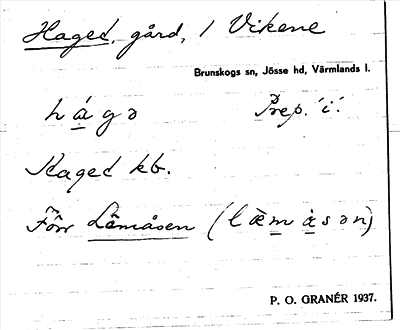 Haget, gård, / Vikene
Brunskogs sn, Jösse hd, Värmlands l.
h á g ə Prep. 'i'.
Haget kb.
Förr Lämåsen (l æ̀ m å̀ s ə n)
P. O. GRANÉR 1937.